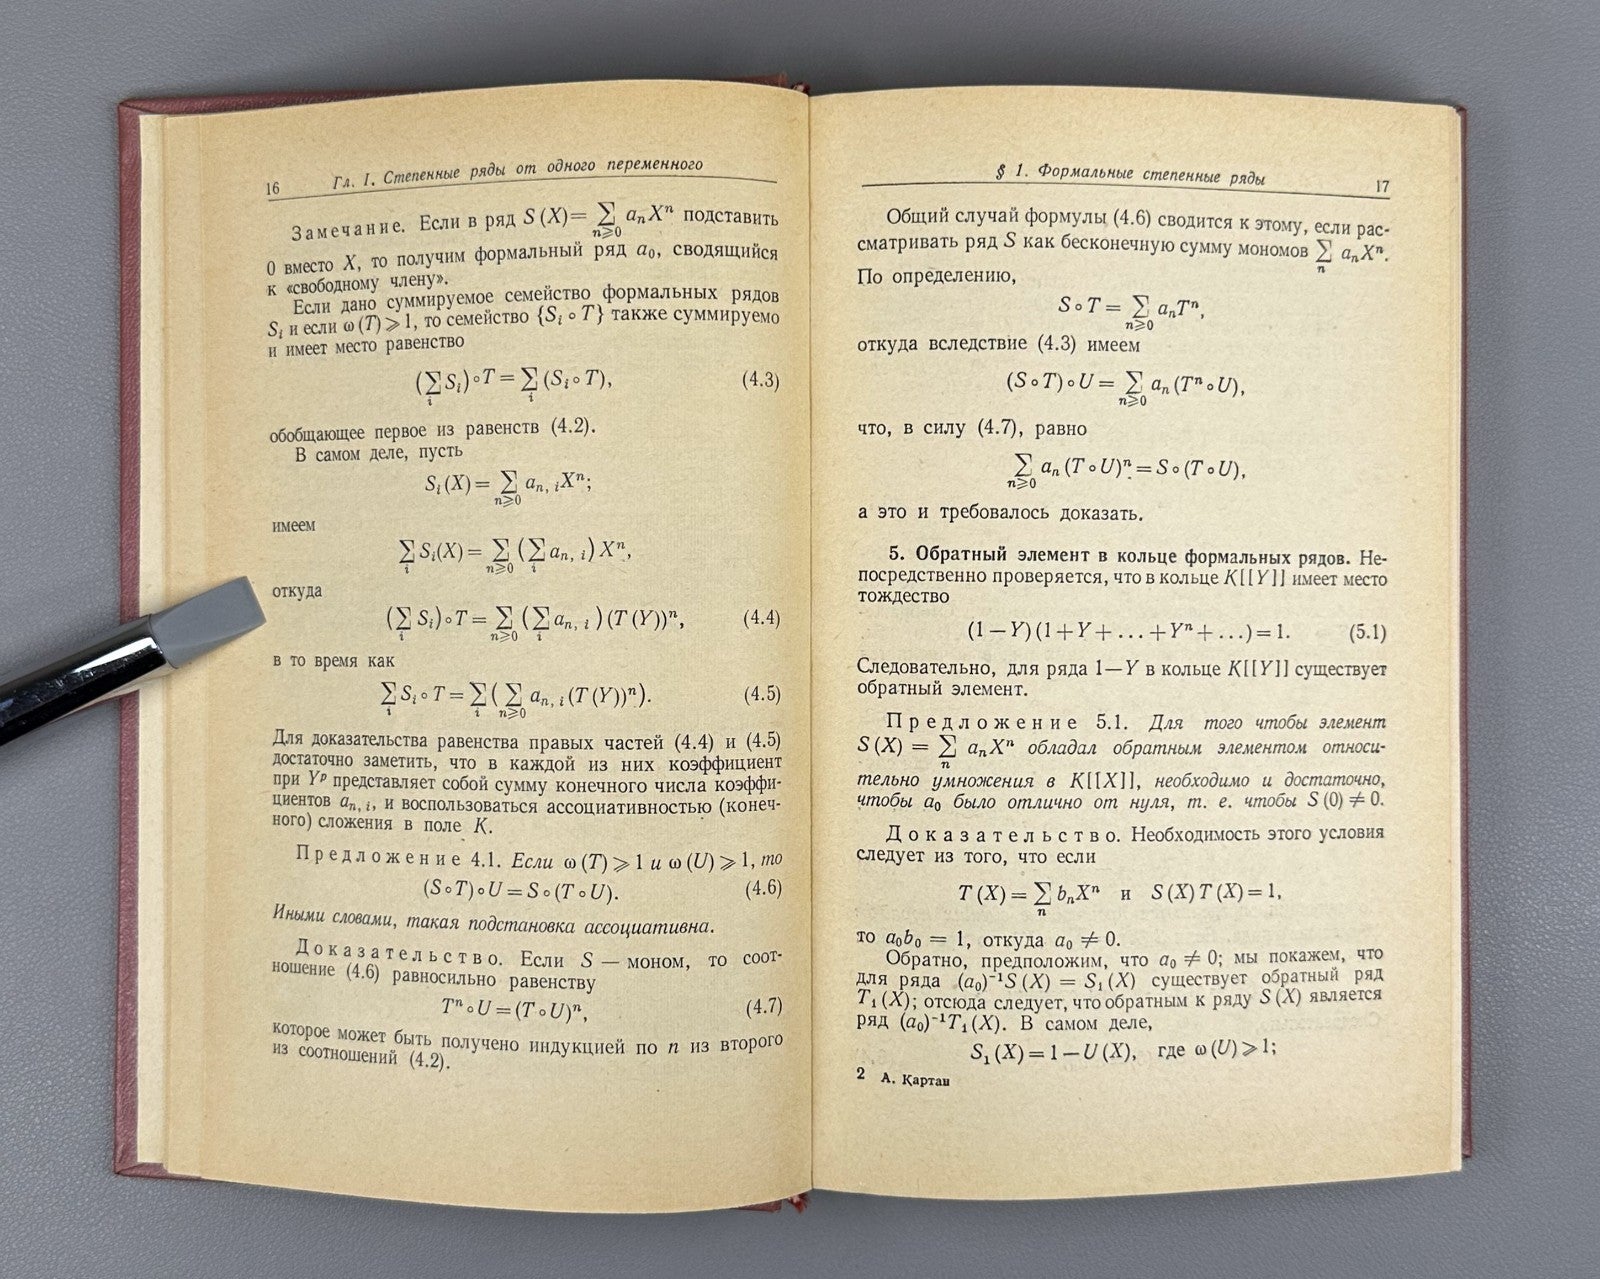 16 Гл. I. Степенные ряды от одного переменного
Замечание. Если в ряд S (X) = ∑ aₙXⁿ подставить
n⩾0
0 вместо X, то получим формальный ряд a₀, сводящийся
к «свободному члену».
Если дано суммируемое семейство формальных рядов
Sᵢ и если ω (T) ⩾ 1, то семейство {Sᵢ ∘ T} также суммируемо
и имеет место равенство
(∑ Sᵢ) ∘ T = ∑ (Sᵢ ∘ T), (4.3)
i i
обобщающее первое из равенств (4.2).
В самом деле, пусть
Sᵢ (X) = ∑ aₙ, ᵢXⁿ;
n⩾0
имеем
∑ Sᵢ(X) = ∑ (∑ aₙ, ᵢ) Xⁿ,
i n⩾0 i
откуда
(∑ Sᵢ) ∘ T = ∑ (∑ aₙ, ᵢ) (T (Y))ⁿ, (4.4)
i n⩾0 i
в то время как
∑ Sᵢ ∘ T = ∑ ( ∑ aₙ, ᵢ (T (Y))ⁿ). (4.5)
i i n⩾0
Для доказательства равенства правых частей (4.4) и (4.5)
достаточно заметить, что в каждой из них коэффициент
при Yᵖ представляет собой сумму конечного числа коэффи-
циентов aₙ, ᵢ, и воспользоваться ассоциативностью (конеч-
ного) сложения в поле K.
Предложение 4.1. Если ω (T) ⩾ 1 и ω (U) ⩾ 1, то
(S ∘ T) ∘ U = S ∘ (T ∘ U). (4.6)
Иными словами, такая подстановка ассоциативна.
Доказательство. Если S — моном, то соот-
ношение (4.6) равносильно равенству
Tⁿ ∘ U = (T ∘ U)ⁿ, (4.7)
которое может быть получено индукцией по n из второго
из соотношений (4.2).
§ 1. Формальные степенные ряды 17
Общий случай формулы (4.6) сводится к этому, если рас-
сматривать ряд S как бесконечную сумму мономов ∑ aₙXⁿ.
n
По определению,
S ∘ T = ∑ aₙTⁿ,
n⩾0
откуда вследствие (4.3) имеем
(S ∘ T) ∘ U = ∑ aₙ (Tⁿ ∘ U),
n⩾0
что, в силу (4.7), равно
∑ aₙ (T ∘ U)ⁿ = S ∘ (T ∘ U),
n⩾0
а это и требовалось доказать.
5. Обратный элемент в кольце формальных рядов. Не-
посредственно проверяется, что в кольце K[[Y]] имеет место
тождество
(1 — Y) (1 + Y + ... + Yⁿ + ...) = 1. (5.1)
Следовательно, для ряда 1 — Y в кольце K[[Y]] существует
обратный элемент.
Предложение 5.1. Для того чтобы элемент
S (X) = ∑ aₙXⁿ обладал обратным элементом относи-
n
тельно умножения в K[[X]], необходимо и достаточно,
чтобы a₀ было отлично от нуля, т. е. чтобы S (0) ≠ 0.
Доказательство. Необходимость этого условия
следует из того, что если
T (X) = ∑ bₙXⁿ и S (X) T (X) = 1,
n
то a₀b₀ = 1, откуда a₀ ≠ 0.
Обратно, предположим, что a₀ ≠ 0; мы покажем, что
для ряда (a₀)⁻¹S (X) = S₁ (X) существует обратный ряд
T₁ (X); отсюда следует, что обратным к ряду S (X) является
ряд (a₀)⁻¹T₁ (X). В самом деле,
S₁ (X) = 1 — U (X), где ω (U) ⩾ 1;
2 А. Картан